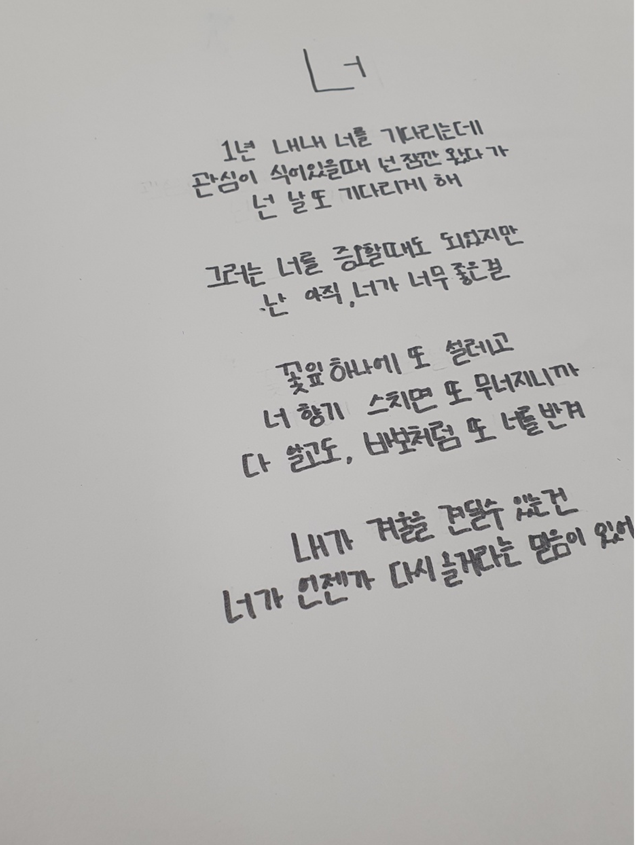 너
1년 내내 너를 기다리는데
관심이 식어있을때 넌 잠깐 왔다가
넌 날 또 기다리게 해
그러는 너를 증오할때도 되었지만
난 아직, 너가 너무 좋은걸
꽃잎 하나에 또 설레고
너 향기 스치면 또 무너지니까
다 알고도, 바보처럼 또 너를 반겨
내가 겨울을 견딜수 있는건
너가 언젠가 다시 올거라는 믿음이 있어